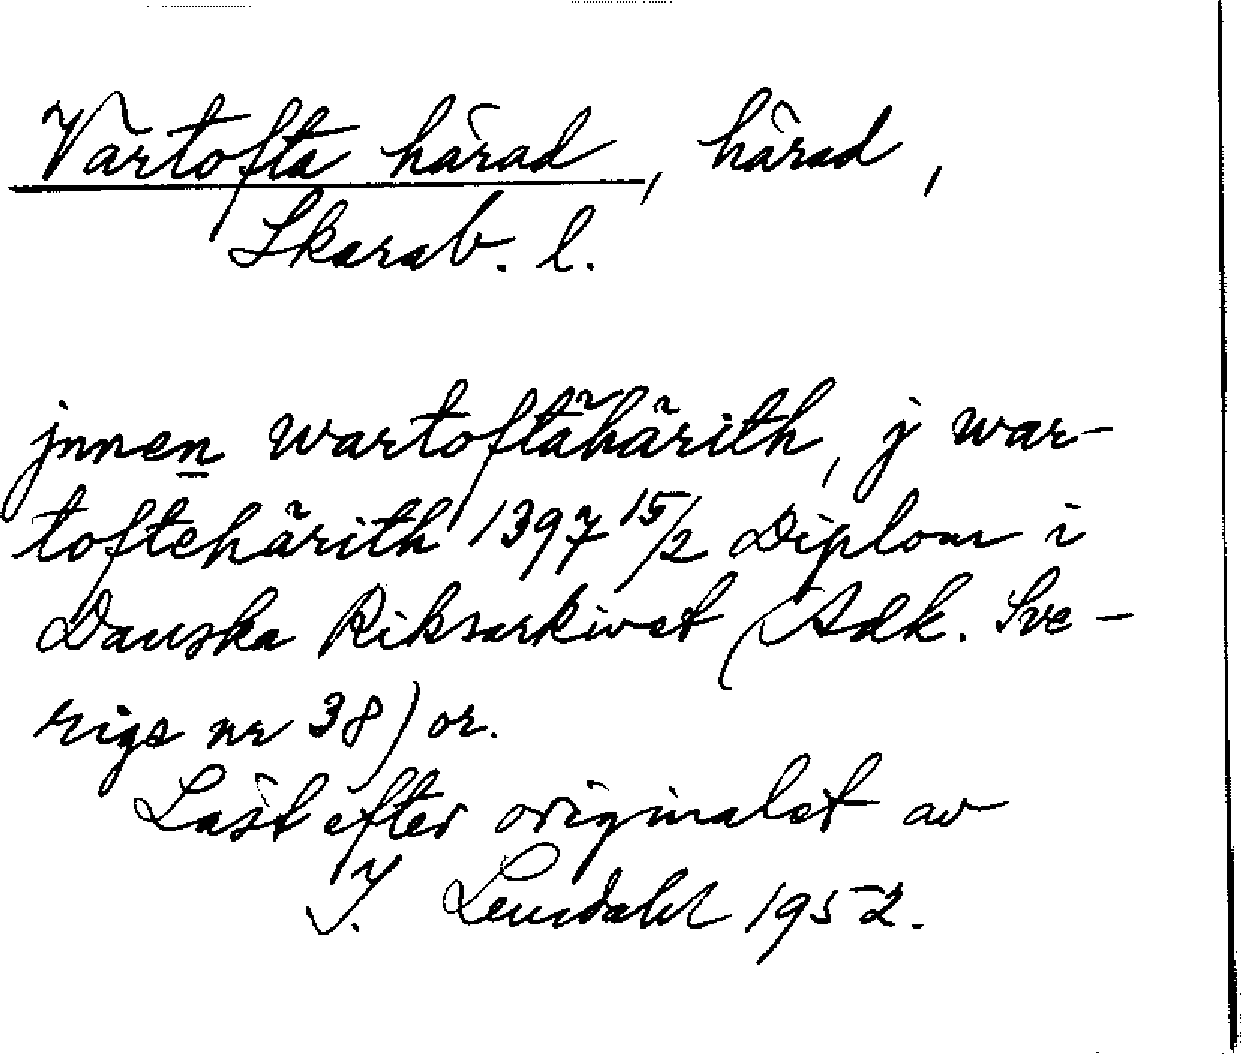 Vartofta härad, härad,
Skarab. l.
jnnen wartoftähärith, j war-
toftehärith 1397 15/2 Diplom i
Danska Riksarkivet (Adk. Sve-
rigs nr 38) or.
Läst efter originalet av
I. Lundahl 1952.